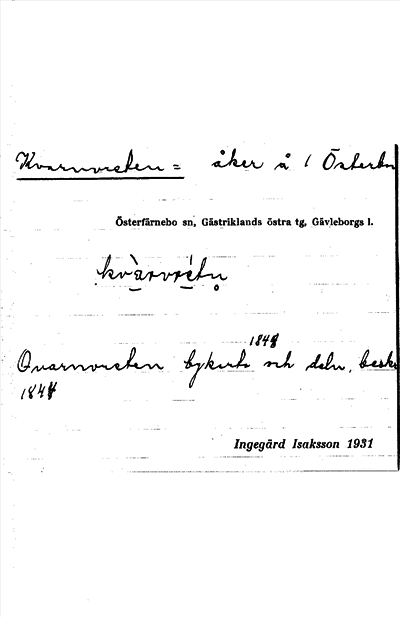 Kvarnvreten = åker å 1 Österbn
Österfärnebo sn, Gästriklands östra tg, Gävleborgs l.
kvàrnvrétn
1844
Qvarnvreten bykarta och deln. besk
1844
Ingegärd Isaksson 1931